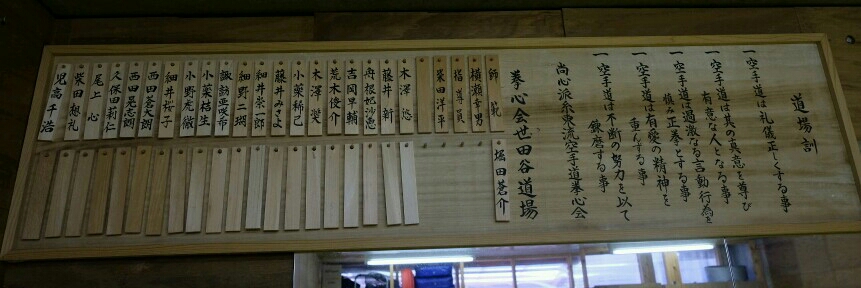 道場訓
一 空手道は礼儀正しくする事
一 空手道は其の真意を尊び
有意な人となる事
一 空手道は過激なる言動行為を
慎み正拳とする事
一 空手道は有愛の精神を
重んずる事
一 空手道は不断の努力を以て
錬磨する事
尚心派糸東流空手道拳心会
拳心会世田谷道場
師範
横瀬幸男
指導員
栗田洋平
木澤悠
藤井新
舟根妃沙恵
吉岡早輔
荒木俊介
木澤燮
小葉稀己
藤井みさよ
細井崇一郎
細野二瑚
諏訪亜咲希
小葉桔生
小野虎徹
細井桜子
西田蒼大朗
西田晃志朗
久保田莉仁
尾上心
柴田想礼
児高千浩
堀田蒼介